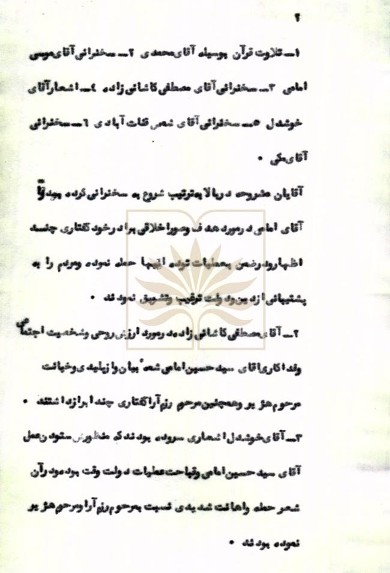 ۲
۱ــ تلاوت قرآن بوسیله آقای محمدی ۲ــ سخنرانی آقای موسی
امامی ۳ــ سخنرانی آقای مصطفی کاشانی زاده ۴ــ اشعار آقای
خوشدل ۵ــ سخنرانی آقای شمس قنات آبادی ۶ــ سخنرانی
آقای مکی ۰
آقایان مشروحه در بالا به ترتیب شروع به سخنرانی کرده بودند
آقای امامی در مورد هدف و اخلاقی برادر خود گفتاری چند
اظهار و در ضمن به عملیات توده ایها حمله نموده و مردم را به
پشتیبانی از دولت ترغیب و تشویق نمودند ۰
۲ــ آقای مصطفی کاشانی زاده در مورد ارزش روحی و شخصیت اجتماعی
و فداکاری آقای سید حسین امامی بیان و از پلیدی و خیانت
مرحوم هژیر و همچنین مرحوم رزم آرا گفتاری چند ابراز داشتند ۰
۳ــ آقای خوشدل اشعاری سروده بودند که منظورش ستودن عمل
آقای سید حسین امامی و قباحت عملیات دولت وقت بود و در آن
شعر حمله و اهانت شدیدی نسبت به مرحوم رزم آرا و مرحوم هژیر
نموده بودند ۰